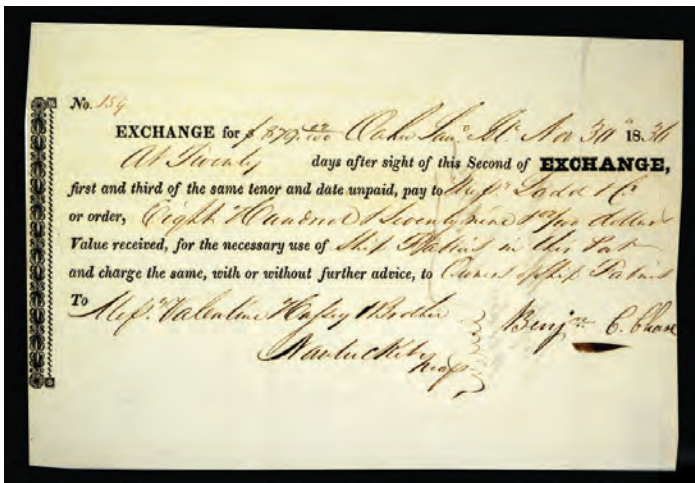 No. 159
EXCHANGE for $ 879. 00/100 Oahu San. Isl. Nov 30 1836
At Twenty days after sight of this Second of EXCHANGE,
first and third of the same tenor and date unpaid, pay to Messrs Ladd & Co
or order, Eight Hundred & Seventy nine dollars
Value received, for the necessary use of Ship Fabius in this Port
and charge the same, with or without further advice, to Owners of Ship Fabius
To
Messrs Valentine Hussey & Brother
Benjn C. Chase
Nantucket
Mass